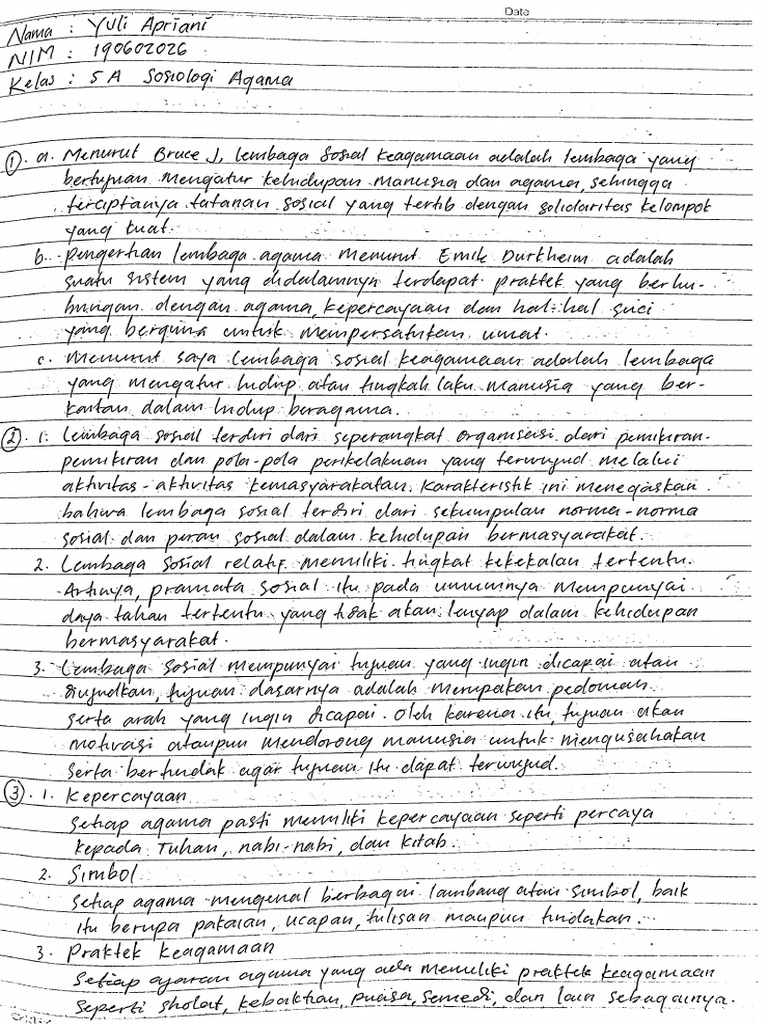 Date
Nama : Yuli Apriani
NIM : 190602026
Kelas : 5 A Sosiologi Agama
1. a. Menurut Bruce J, lembaga sosial keagamaan adalah lembaga yang
bertujuan mengatur kehidupan manusia dan agama, sehingga
terciptanya tatanan sosial yang tertib dengan solidaritas kelompok
yang kuat.
b. Pengertian lembaga agama menurut Emile Durkheim adalah
suatu sistem yang didalamnya terdapat praktek yang berhu-
bungan dengan agama, kepercayaan dan hal-hal suci
yang berguna untuk mempersatukan umat.
c. Menurut saya lembaga sosial keagamaan adalah lembaga
yang mengatur hidup atau tingkah laku manusia yang ber-
kaitan dalam hidup beragama.
2. 1. Lembaga sosial terdiri dari seperangkat organisasi dari pemikiran-
pemikiran dan pola-pola perikelakuan yang terwujud melalui
aktivitas-aktivitas kemasyarakatan. Karakteristik ini menegaskan
bahwa lembaga sosial terdiri dari sekumpulan norma-norma
sosial dan peran sosial dalam kehidupan bermasyarakat.
2. Lembaga sosial relatif memiliki tingkat kekekalan tertentu.
Artinya, pranata sosial itu pada umumnya mempunyai
daya tahan tertentu yang tidak akan lenyap dalam kehidupan
bermasyarakat.
3. Lembaga sosial mempunyai tujuan yang ingin dicapai atau
diujudkan, tujuan dasarnya adalah merupakan pedoman
serta arah yang ingin dicapai. Oleh karena itu, tujuan akan
motivasi ataupun mendorong manusia untuk mengusahakan
serta bertindak agar tujuan itu dapat terwujud.
3. 1. Kepercayaan
Setiap agama pasti memiliki kepercayaan seperti percaya
kepada Tuhan, nabi-nabi, dan kitab.
2. Simbol
Setiap agama mengenal berbagai lambang atau simbol, baik
itu berupa pakaian, ucapan, tulisan maupun tindakan.
3. Praktek Keagamaan
Setiap ajaran agama yang ada memiliki praktek keagamaan
seperti sholat, kebaktian, puasa, semedi, dan lain sebagainya.